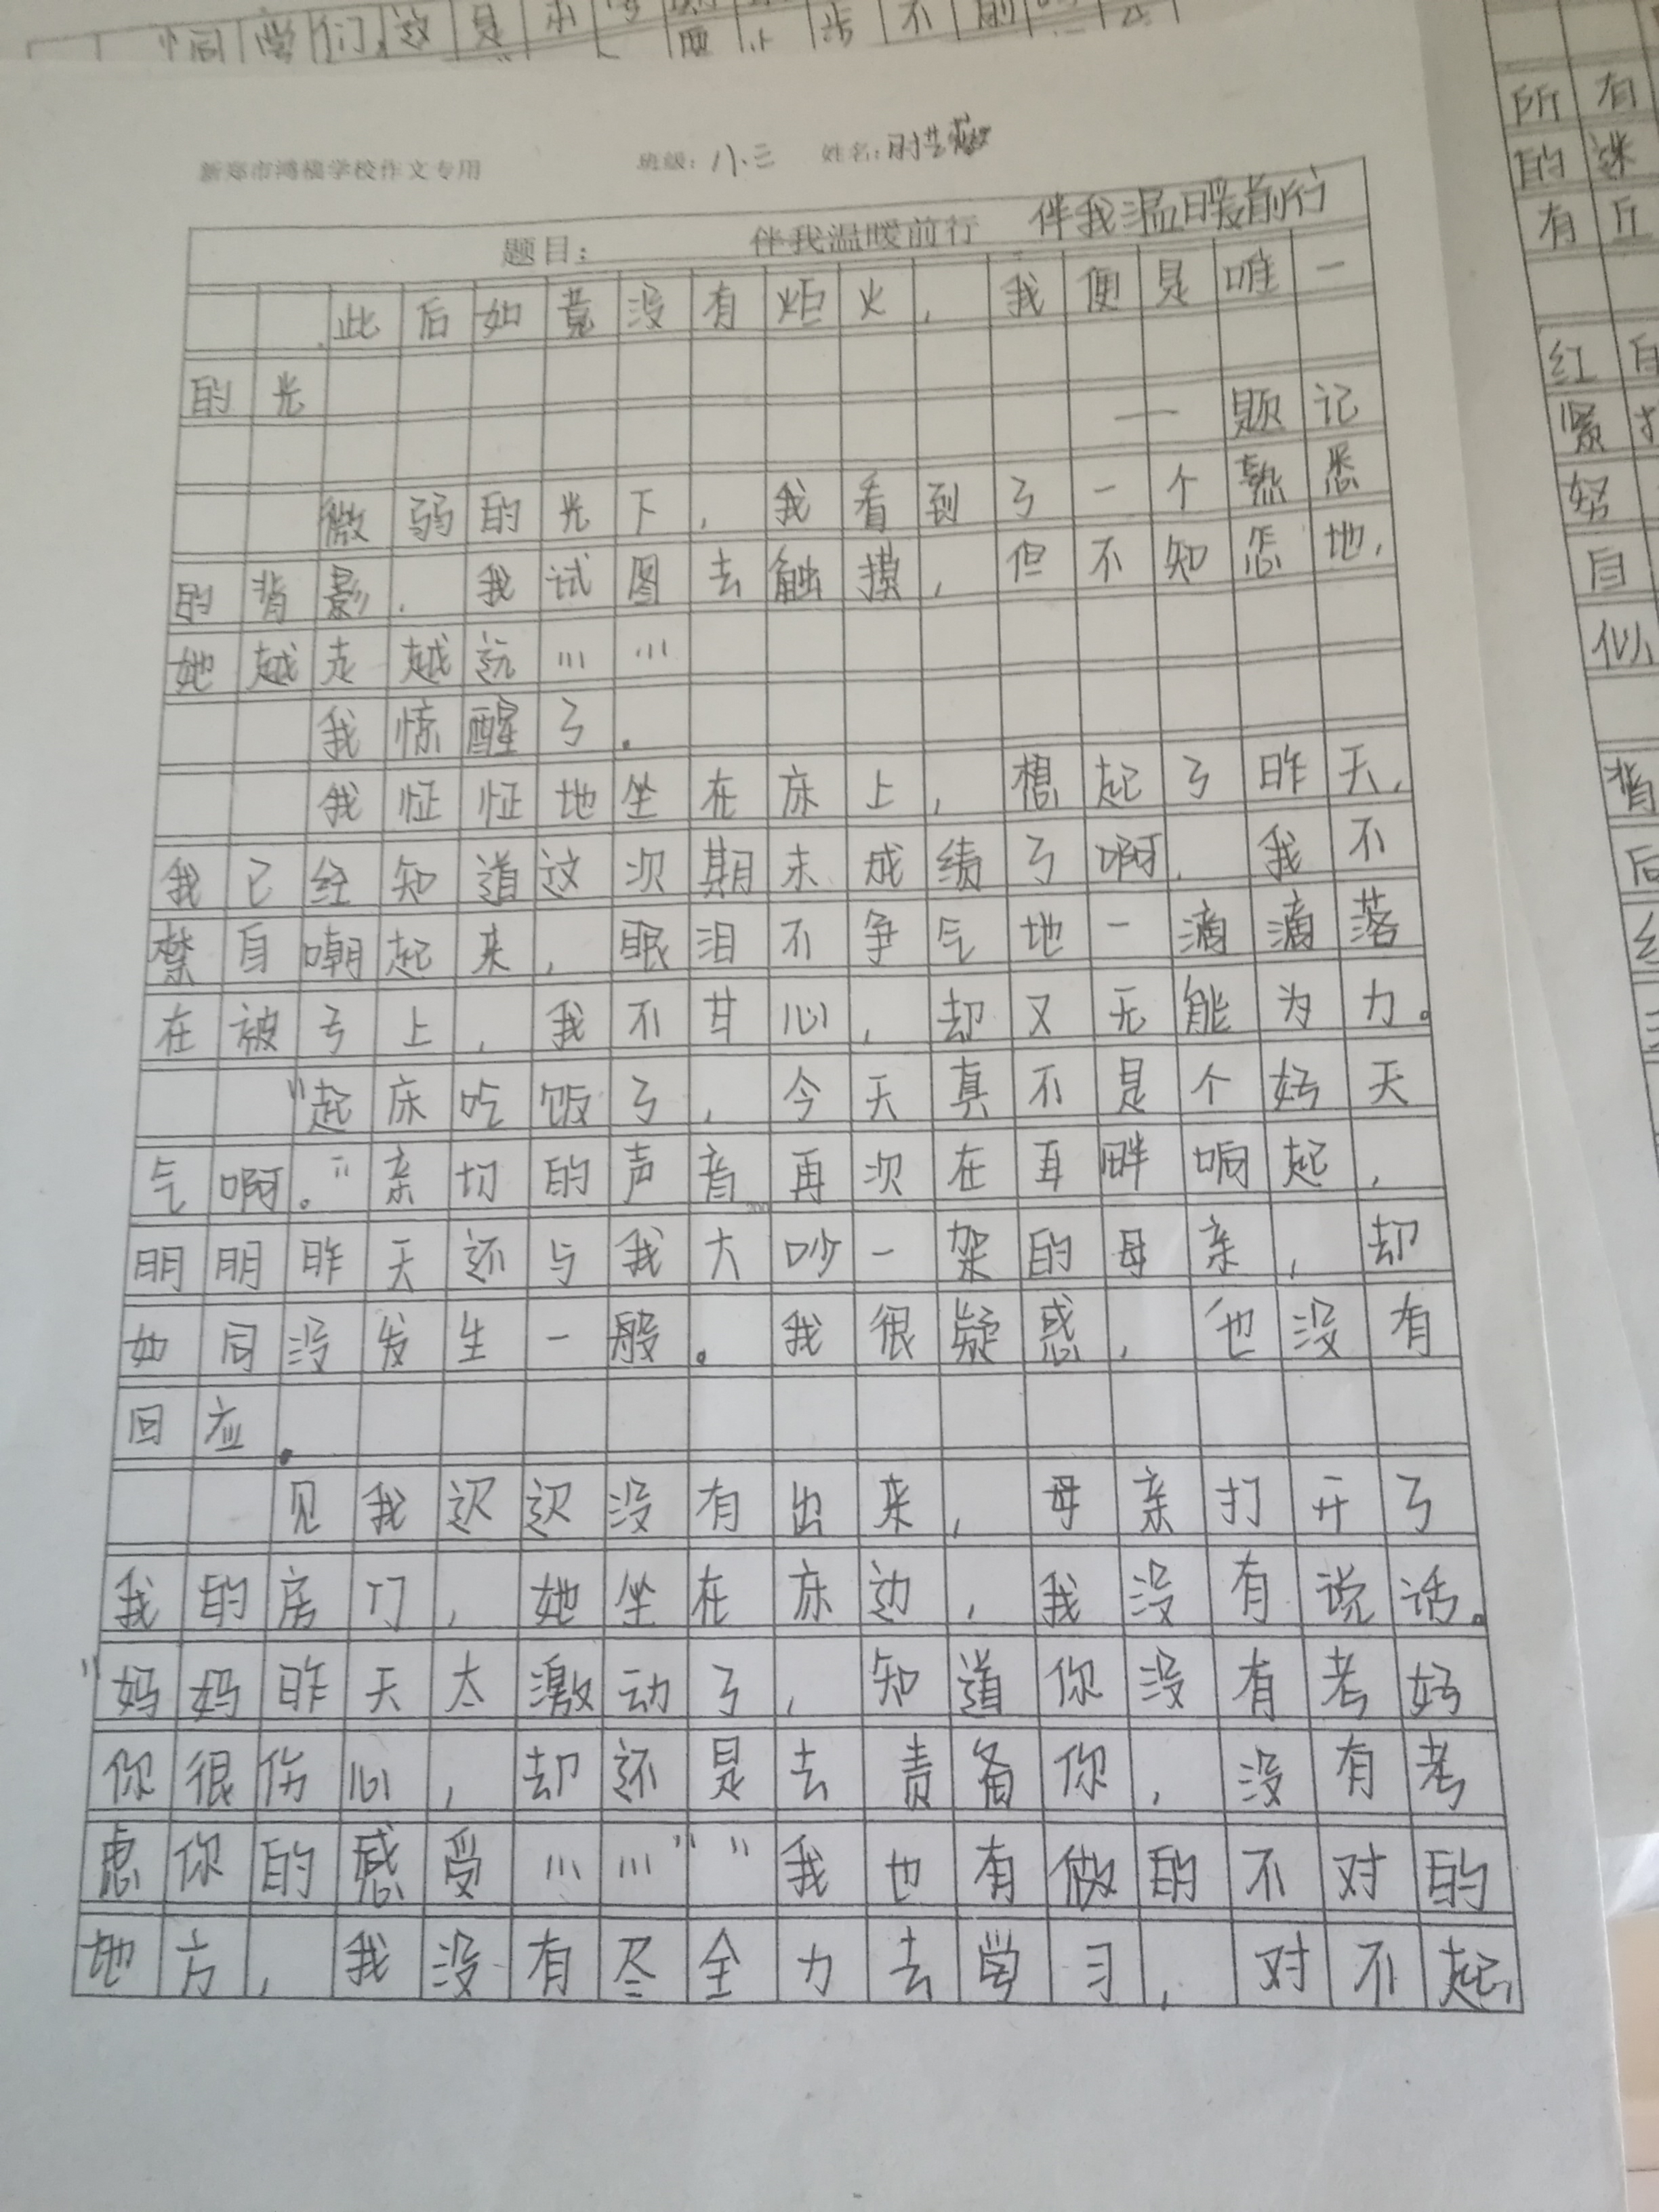 同学们,这是
新郑市鸿福学校作文专用 班级:八.三 姓名:
题目: 伴我温暖前行 伴我温暖前行
此后如竟没有炬火,我便是唯一
的光
——题记
微弱的光下,我看到了一个熟悉
的背影,我试图去触摸,但不知怎地,
她越走越远……
我惊醒了。
我怔怔地坐在床上,想起了昨天,
我已经知道这次期末成绩了啊,我不
禁自嘲起来,眼泪不争气地一滴滴落
在被子上,我不甘心,却又无能为力。
“起床吃饭了,今天真不是个好天
气啊。”亲切的声音再次在耳畔响起,
明明昨天还与我大吵一架的母亲,却
如同没发生一般。我很疑惑,也没有
回应。
见我迟迟没有出来,母亲打开了
我的房门,她坐在床边,我没有说话。
“妈妈昨天太激动了,知道你没有考好
你很伤心,却还是去责备你,没有考
虑你的感受……”“我也有做的不对的
地方,我没有尽全力去学习,对不起,
所有
的迷
有丘
红自
紧
努
自
似
背
后